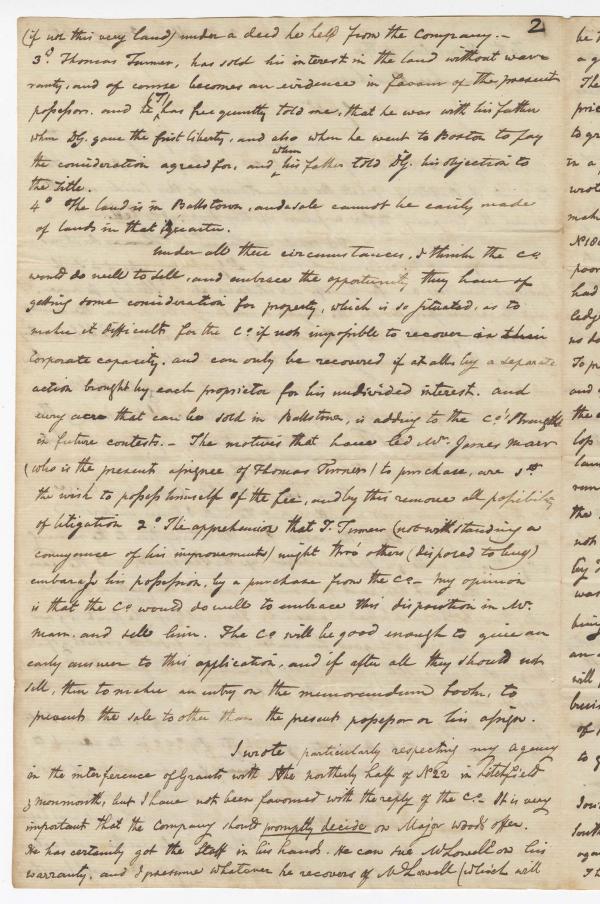 2
(if not this very land) under a deed he held from the Company. –
3.º Thomas Turner, has sold his interest in the land without war-
ranty, and of course becomes an evidence in favour of the present
possessor. and he has frequently told me, that he was with his father
when DJ. gave the first liberty, and also when he went to Boston to pay
the consideration agreed for, and when his father told DJ. his objection to
the title.
4.º The land is in Ballstown, and a sale cannot be easily made
of lands in that Quarter.
Under all these circumstances, I think the Cº.
would do well to sell, and embrace the opportunity they have of
getting some consideration for property, which is so situated, as to
make it difficult for the Cº. if not impossible to recover in their
corporate capacity. and can only be recovered if at all by a separate
action brought by each proprietor for his undivided interest. and
every acre that can be sold in Ballstown, is adding to the Cº.s Strength
in future contests. – The motives that have led Mr. James Marr
(who is the present assignee of Thomas Turner) to purchase, are 1st
the wish to possess himself of the fee, and by this remove all possibility
of litigation 2.º The apprehension that T. Turner (notwithstanding a
conveyance of his improvements) might thro' others (disposed to buy)
embarrass his possession, by a purchase from the Cº. – My opinion
is that the Cº. would do well to embrace this disposition in Mr.
Marr. and sell him. The Cº. will be good enough to give an
early answer to this application, and if after all they should not
sell, then to make an entry on the memorandum book, to
prevent the sale to other than the present possessor or his assigns.
I wrote particularly respecting my agency
in the interference of Grants with the northerly half of Nº 22 in Litchfield
& Monmouth, but I have not been favoured with the reply of the Cº. – It is very
important that the Company should promptly decide on Major Wood's offer.
He has certainly got the Staff in his hands. He can sue Mr Lowell on his
warranty, and I presume whatever he recovers of Mr Lowell (which will